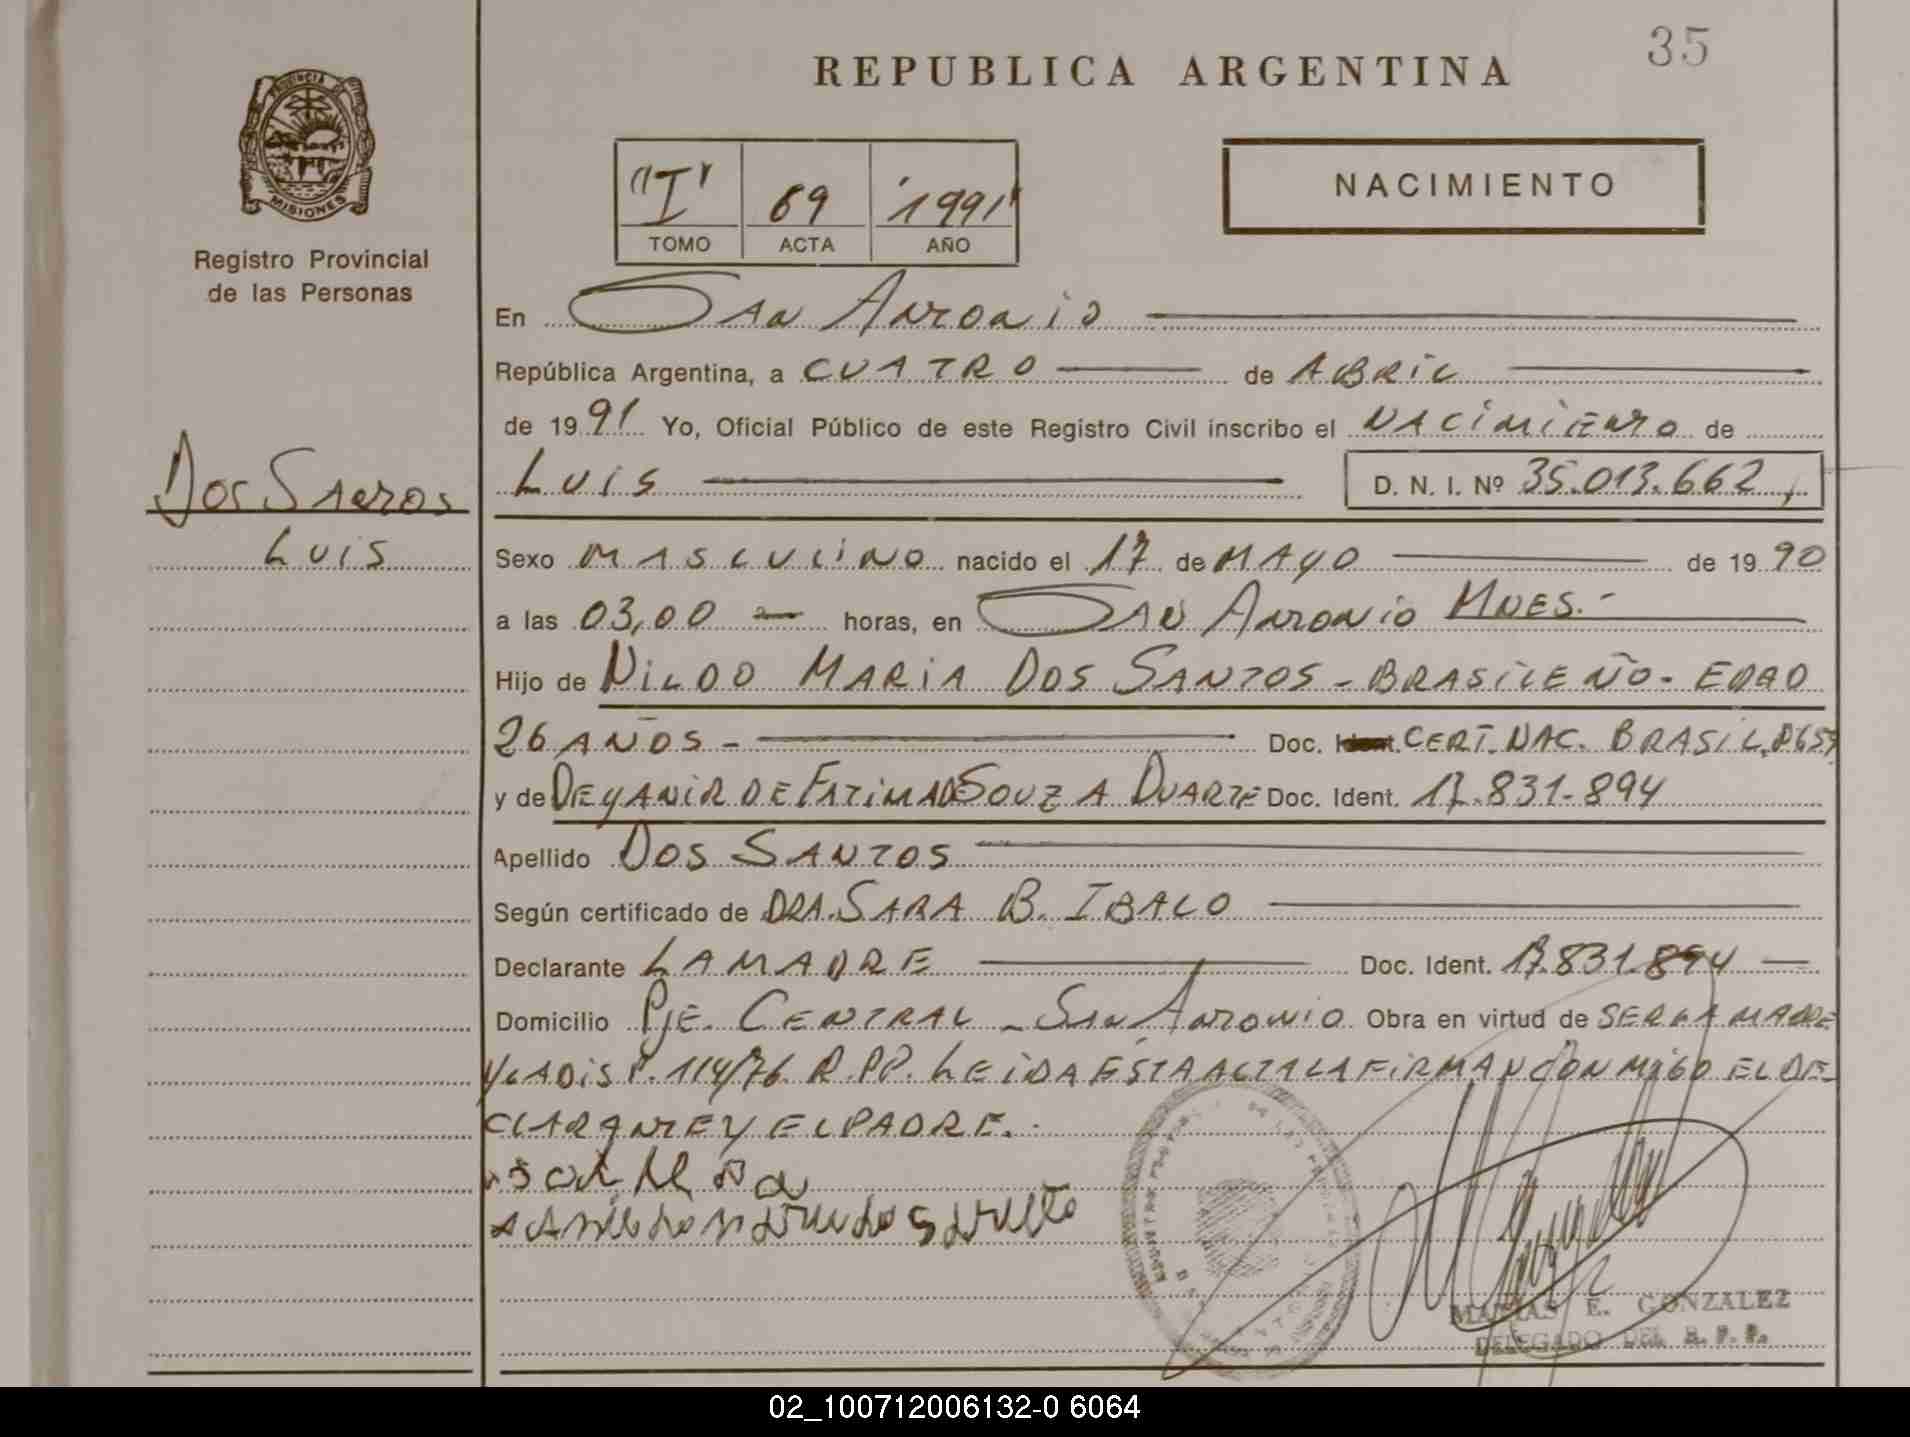 35
REPUBLICA ARGENTINA
PROVINCIA DE
MISIONES
Registro Provincial
de las Personas
"I" 69 1991
TOMO ACTA AÑO
NACIMIENTO
En San Antonio
República Argentina, a CUATRO de ABRIL
de 1991 Yo, Oficial Público de este Registro Civil inscribo el NACIMIENTO de
LUIS D. N. I. Nº 35.013.662
Dos Santos
LUIS
Sexo MASCULINO nacido el 17 de MAYO de 1990
a las 03,00 horas, en San Antonio MNES.-
Hijo de NILDO MARIA DOS SANTOS - BRASILEÑO - EDAD
26 AÑOS - Doc. Ident. CERT. NAC. BRASIL.
y de DEYANIR DE FATIMA DE SOUZA DUARTE Doc. Ident. 17.831.894
Apellido DOS SANTOS
Según certificado de DRA. SARA B. IBALO
Declarante LA MADRE Doc. Ident. 17.831.894
Domicilio PJE. CENTRAL - San Antonio Obra en virtud de SER LA MADRE
Y LA DISP. 114/76 R.PP. LEIDA ESTA ACTA LA FIRMAN CONMIGO EL DE-
CLARANTE Y EL PADRE.
MATIAS E. GONZALEZ
DELEGADO DEL R. P. P.
02_100712006132-0 6064